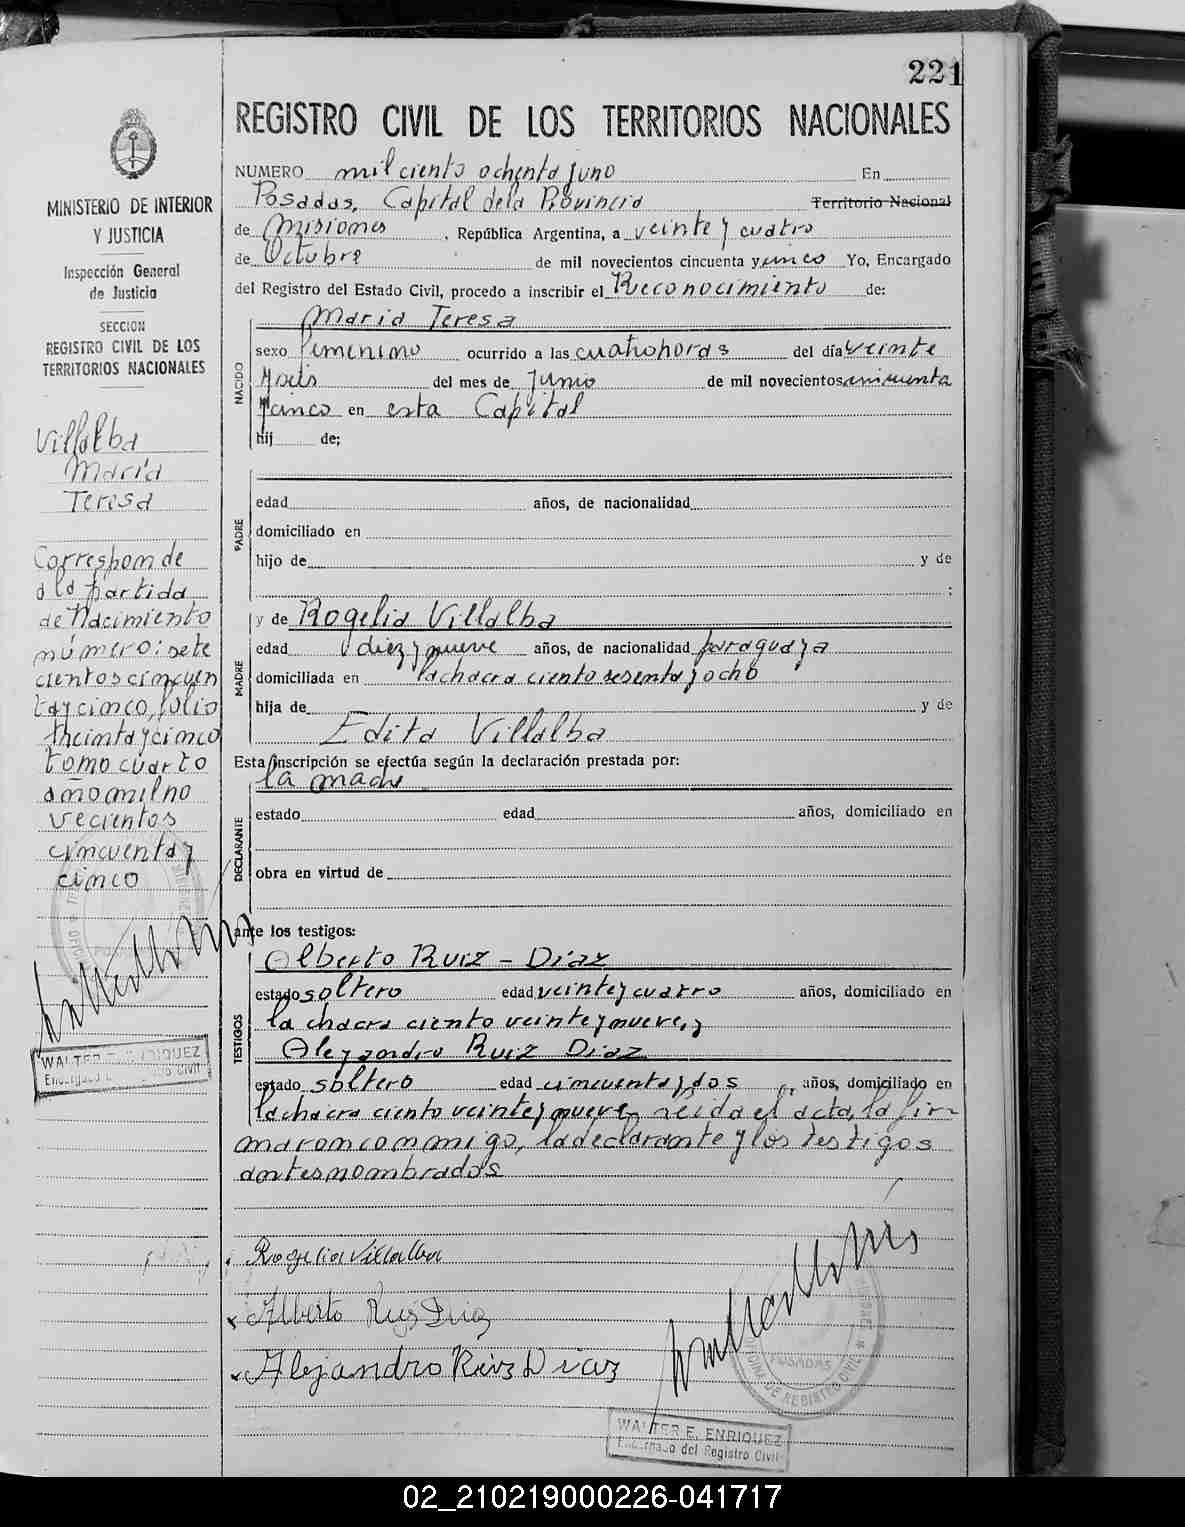 221
REGISTRO CIVIL DE LOS TERRITORIOS NACIONALES
NUMERO mil ciento ochenta y uno En
Posadas, Capital de la Provincia Territorio Nacional
de Misiones, República Argentina, a veinte y cuatro
de Octubre de mil novecientos cincuenta y cinco Yo, Encargado
del Registro del Estado Civil, procedo a inscribir el Reconocimiento de:
NACIDO
Maria Teresa
sexo femenino ocurrido a las cuatro horas del día veinte
y seis del mes de Junio de mil novecientos cincuenta
y cinco en esta Capital
hij de;
PADRE
edad años, de nacionalidad
domiciliado en
hijo de y de
:
MADRE
y de Rogelia Villalba
edad diez y nueve años, de nacionalidad paraguaya
domiciliada en la chacra ciento sesenta y ocho
hija de y de
Edita Villalba
Esta inscripción se efectúa según la declaración prestada por:
DECLARANTE
la madre
estado edad años, domiciliado en
obra en virtud de
ante los testigos:
TESTIGOS
Alberto Ruiz - Diaz
estado soltero edad veinte y cuatro años, domiciliado en
la chacra ciento veinte y nueve, y
Alejandro Ruiz Diaz
estado soltero edad cincuenta y dos años, domiciliado en
la chacra ciento veinte y nueve leida el acta, la fir-
maron conmigo, la declarante y los testigos
antes nombrados
Rogelia Villalba
Alberto Ruiz Diaz
Alejandro Ruiz Diaz
OFICINA DE REGISTRO CIVIL
POSADAS
WALTER E. ENRIQUEZ
Encargado del Registro Civil
MINISTERIO DE INTERIOR
Y JUSTICIA
Inspección General
de Justicia
SECCION
REGISTRO CIVIL DE LOS
TERRITORIOS NACIONALES
Villalba
María
Teresa
Corresponde
a la partida
de Nacimiento
número: sete
cientos cincuen
ta y cinco, folio
treinta y cinco
tomo cuarto
año mil no
vecientos
cincuenta y
cinco
WALTER E. ENRIQUEZ
Encargado del Registro Civil
02_210219000226-041717